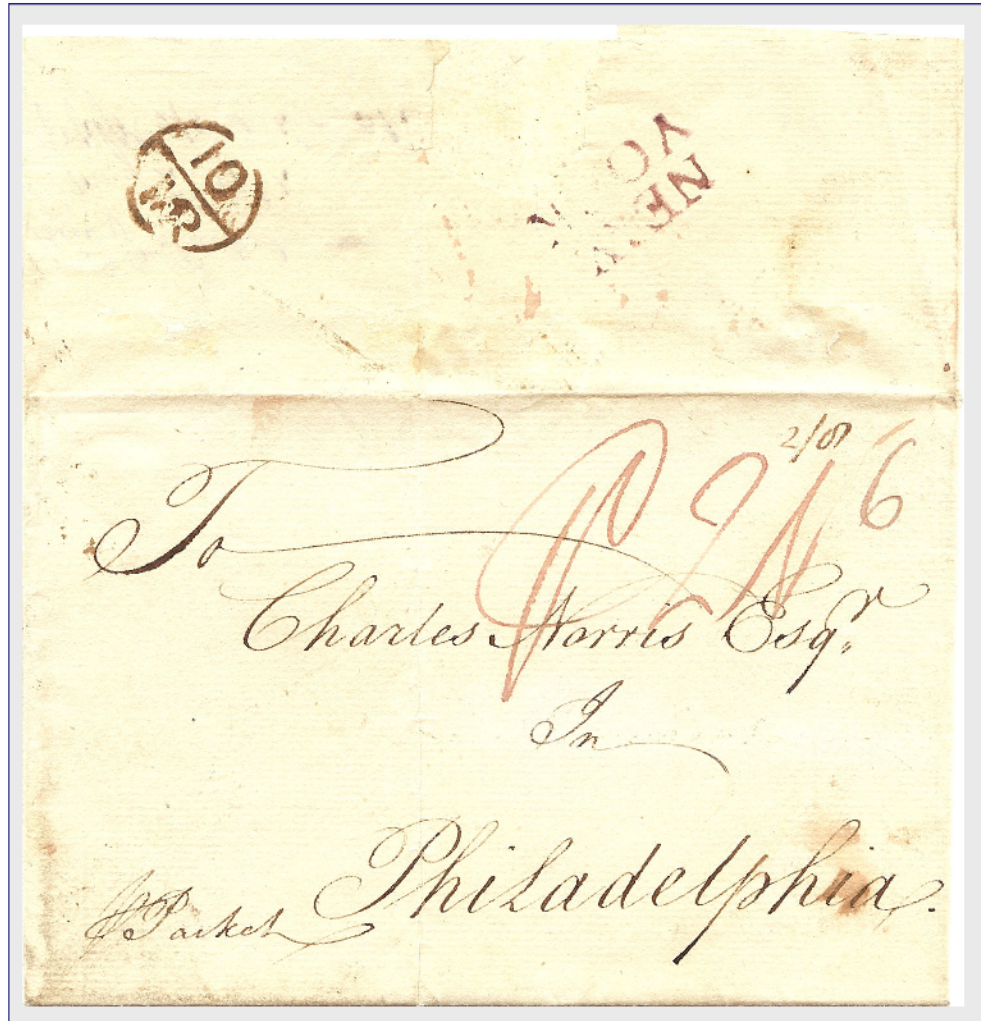 10
MR
NEW
YO
2/8
6
To
Charles Norris Esqr.
In
Philadelphia.
Packet